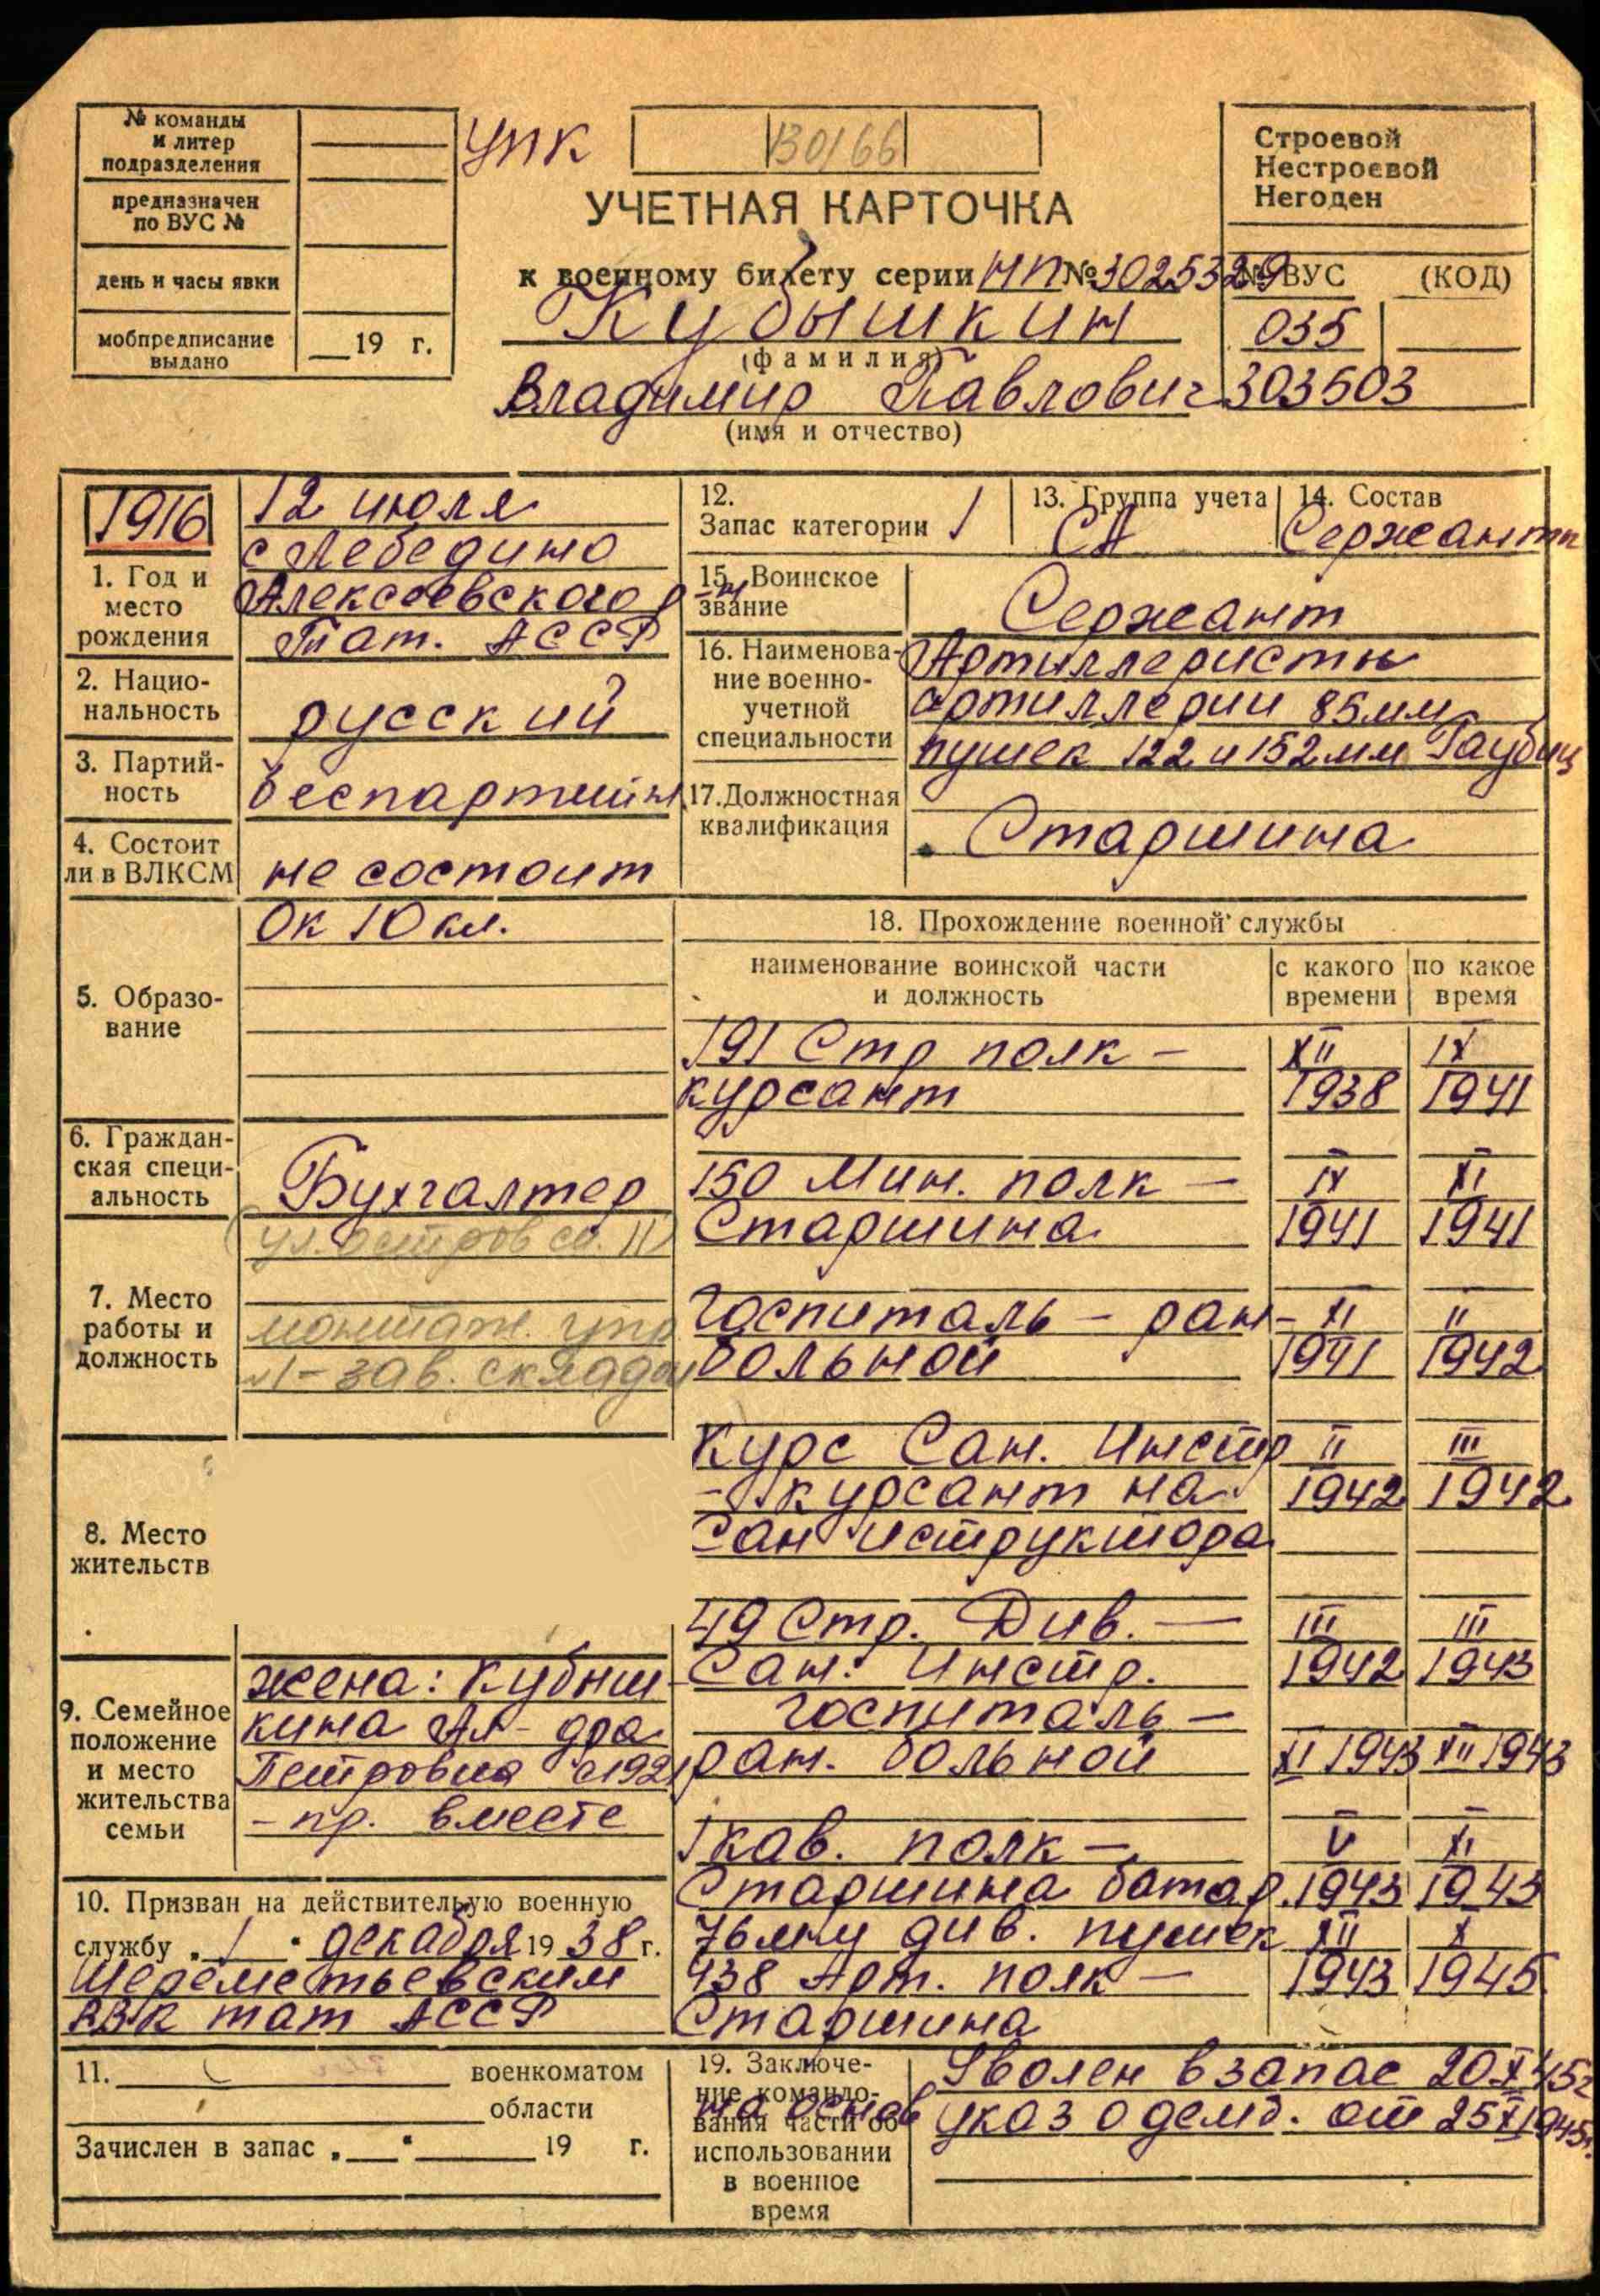 № команды
и литер
подразделения
предназначен
по ВУС №
день и часы явки
мобпредписание
выдано
19 г.
УПК
130/66
УЧЕТНАЯ КАРТОЧКА
к военному билету серии НП № 3025329
Кубышкин
(фамилия)
Владимир Павлович
(имя и отчество)
Строевой
Нестроевой
Негоден
№ ВУС (КОД)
035
303503
1916
1. Год и
место
рождения
12 июля
с Лебедино
Алексеевского р-н
Тат. АССР
2. Нацио-
нальность
русский
3. Партий-
ность
беспартийн
4. Состоит
ли в ВЛКСМ
не состоит
5. Образо-
вание
Ок 10 кл.
6. Граждан-
ская специ-
альность
Бухгалтер
7. Место
работы и
должность
монтаж. упр
№1 - зав. складом
8. Место
жительств
9. Семейное
положение
и место
жительства
семьи
жена: Кубыш-
кина Ал-дра
Петровна с 1921
- пр. вместе
10. Призван на действительную военную
службу „ 1 " декабря 19 38 г.
Шереметьевским
РВК тат АССР
11. военкоматом
области
Зачислен в запас „ " 19 г.
12.
Запас категории 1
13. Группа учета
СА
14. Состав
Сержанты
15. Воинское
звание
Сержант
16. Наименова-
ние военно-
учетной
специальности
Артиллеристы
артиллерии 85мм
пушек 122 и 152мм Гаубиц
17. Должностная
квалификация
Старшина
18. Прохождение военной службы
наименование воинской части
и должность
с какого
времени
по какое
время
191 Стр полк - XII IX
курсант 1938 1941
150 Мин. полк - IX XI
Старшина 1941 1941
Госпиталь - ран- XI II
больной 1941 1942
Курс Сан. Инстр II III
- курсант на 1942 1942
Сан иструктора
49 Стр. Див. - III III
Сан. Инстр. 1942 1943
госпиталь -
ран. больной XI 1943 XII 1943
1 кав. полк - V XI
Старшина батар. 1943 1943
76мму див. пушек XII X
438 Арт. полк - 1943 1945
Старшина
19. Заключе-
ние командо-
вания части об
использовании
в военное
время
Уволен в запас 20 X 45г
на основ указ о демоб. от 25 IX 1945г.